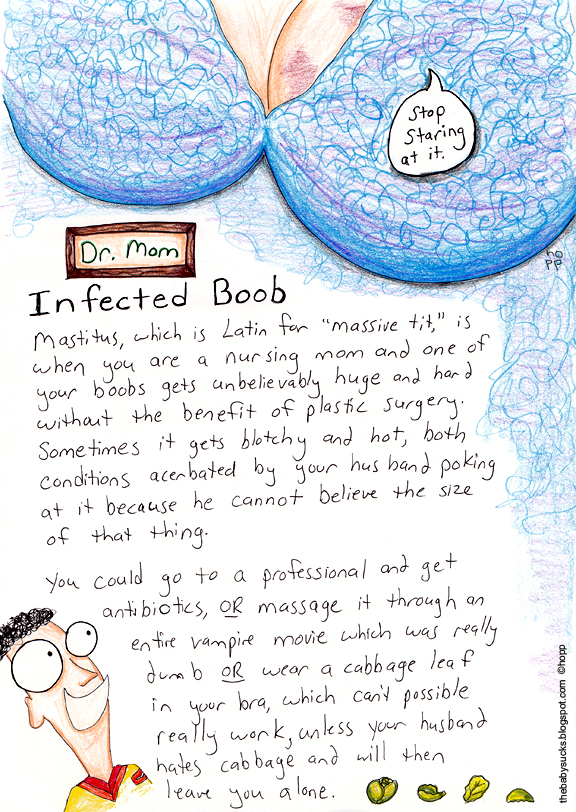 Stop
Staring
at it.
hopp
Dr. Mom
Infected Boob
Mastitus, which is Latin for "massive tit," is
when you are a nursing mom and one of
your boobs gets unbelievably huge and hard
without the benefit of plastic surgery.
Sometimes it gets blotchy and hot, both
conditions acerbated by your husband poking
at it because he cannot believe the size
of that thing.
You could go to a professional and get
antibiotics, OR massage it through an
entire vampire movie which was really
dumb OR wear a cabbage leaf
in your bra, which can't possible
really work, unless your husband
hates cabbage and will then
leave you alone.
thebabysucks.blogspot.com ©hopp